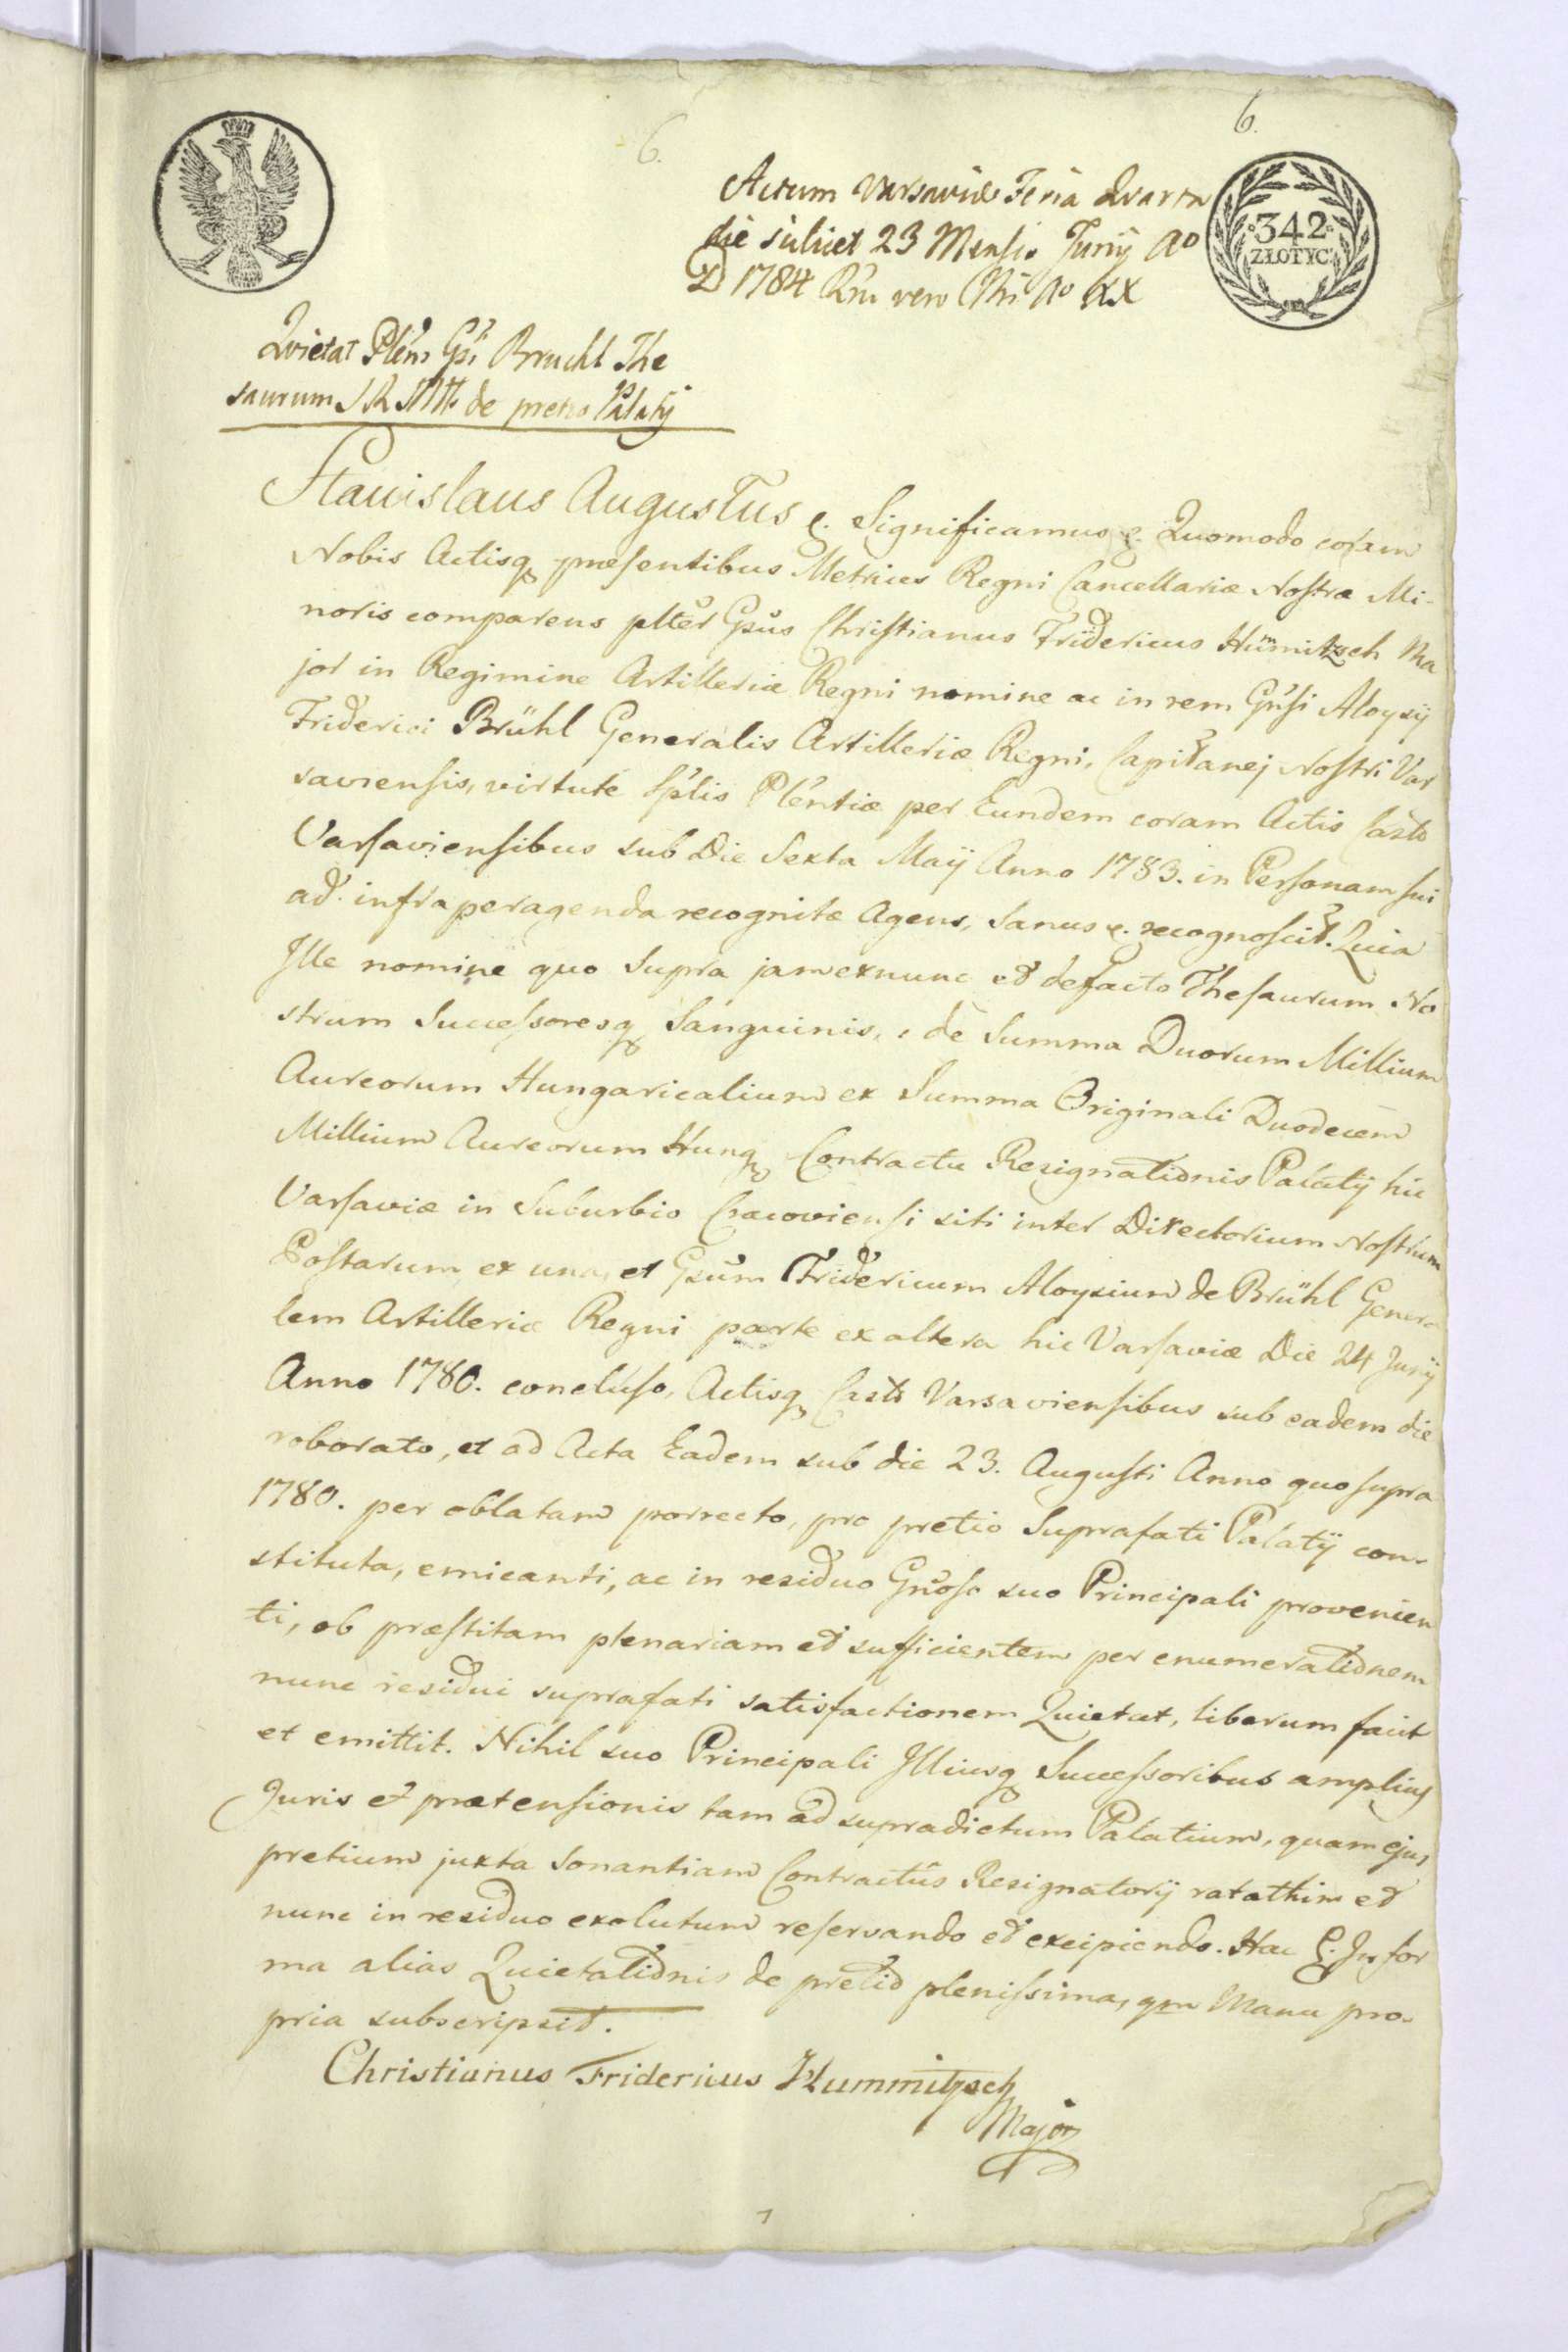 6.
6.
Actum Varsaviæ Feria Quarta
die scilicet 23 Mensis Junij Aº
D 1784 Rni vero Nri Aº XX
342
ZŁOTYC
Quietat Plen Gsi Bruchl The
saurum SRMtts de pretio Palatij
Stanislaus Augustus &. Significamus &. Quomodo coram
Nobis Actisq præsentibus Metrices Regni Cancellariæ Nostræ Mi-
noris comparens plter Gsus Christianus Fridericus Hümitzsch Ma
jor in Regimine Artilleriæ Regni nomine ac in rem Gnsi Aloysij
Friderici Brühl Generalis Artilleriæ Regni, Capitanej Nostri Var
saviensis, virtute Splis Plentiæ per Eundem coram Actis Casts
Varsaviensibus sub Die Sexta Maij Anno 1783. in Personam sui
ad infra peragenda recognitæ Agens, Sanus &. recognoscit. Quia
Ille nomine quo Supra jam exnunc et defacto Thesaurum No
strum Successoresq Sanguinis, de Summa Duorum Millium
Aureorum Hungaricalium ex Summa Originali Duodecem
Millium Aureorum Hung Contractu Resignationis Palatij hic
Varsaviæ in Suburbio Cracoviensi siti inter Directorium Nostrum
Postarum ex una, et Gsum Fridericum Aloysium de Brühl Genera
lem Artilleriæ Regni parte ex altera hic Varsaviæ Die 24 Junij
Anno 1780. concluso, Actisq Casts Varsaviensibus sub eadem die
roborato, et ad Acta Eadem sub die 23. Augusti Anno quo supra
1780. per oblatam porrecto, pro pretio Suprafati Palatij con-
stituta, emicanti, ac in residuo Gnoso suo Principali provenien
ti, ob præstitam plenariam et sufficientem per enumerationem
nunc residui suprafati satisfactionem Quietat, liberum facit
et emittit. Nihil suo Principali Illiusq Successoribus amplius
Juris et prætensionis tam ad supradictum Palatium, quam ejus
pretium juxta Sonantiam Contractûs Resignatorij ratathim et
nunc in residuo exolutum reservando et excipiendo. Hac &. In for
ma alias Quietationis de pretio plenissima, qm Manu pro-
pria subscripsit.
Christianus Fridericus Hummitzsch
Major